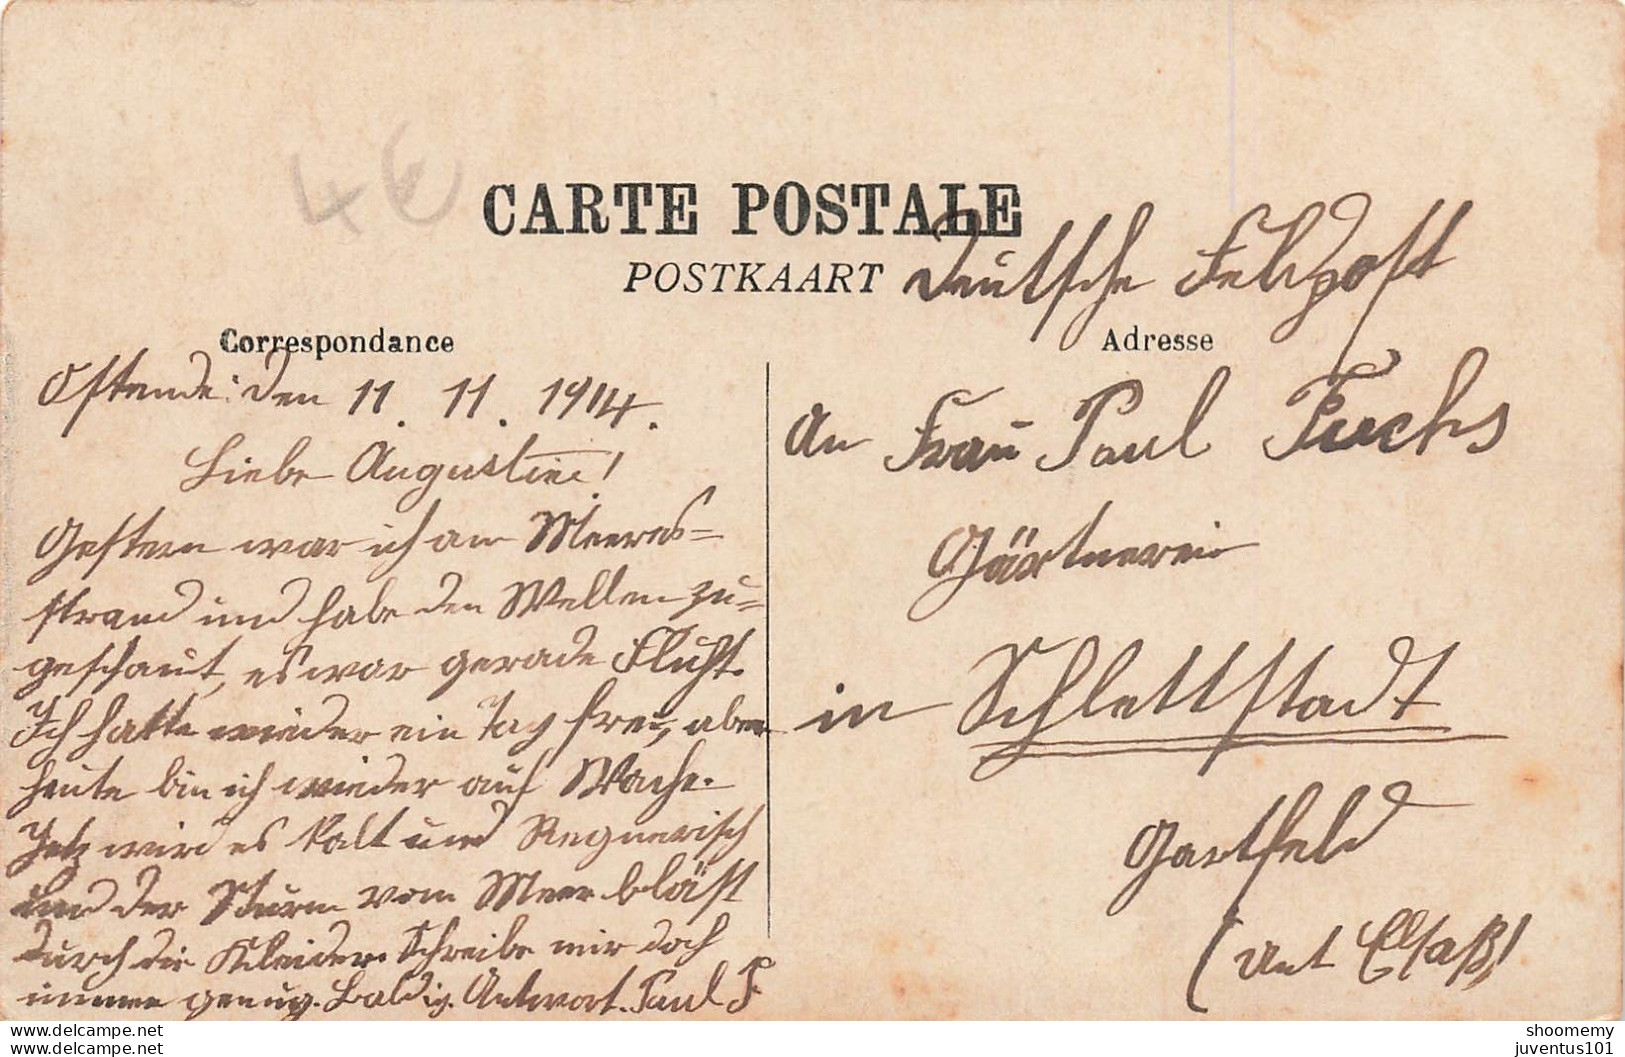 4€
CARTE POSTALE
POSTKAART
Deutsche Feldpost
Correspondance
Adresse
Ostende: den 11. 11. 1914.
Liebe Augustine!
Gestern war ich am Meeres=
strand und habe den Wellen zu=
geschaut, es war gerade Fluht.
Ich hatte wieder ein Tag frei, aber
heute bin ich wieder auf Wache.
Jetz wird es kalt und Regnerisch
und der Sturm vom Meer bläst
durch die Kleider. Schreibe mir doch
immer genug. Baldig. Antwort. Paul F
An Frau Paul Fuchs
Gärtnerei
in Schlettstadt
Gartfeld
(Unt Elsaß!
shoomemy
juventus101
delcampe.net